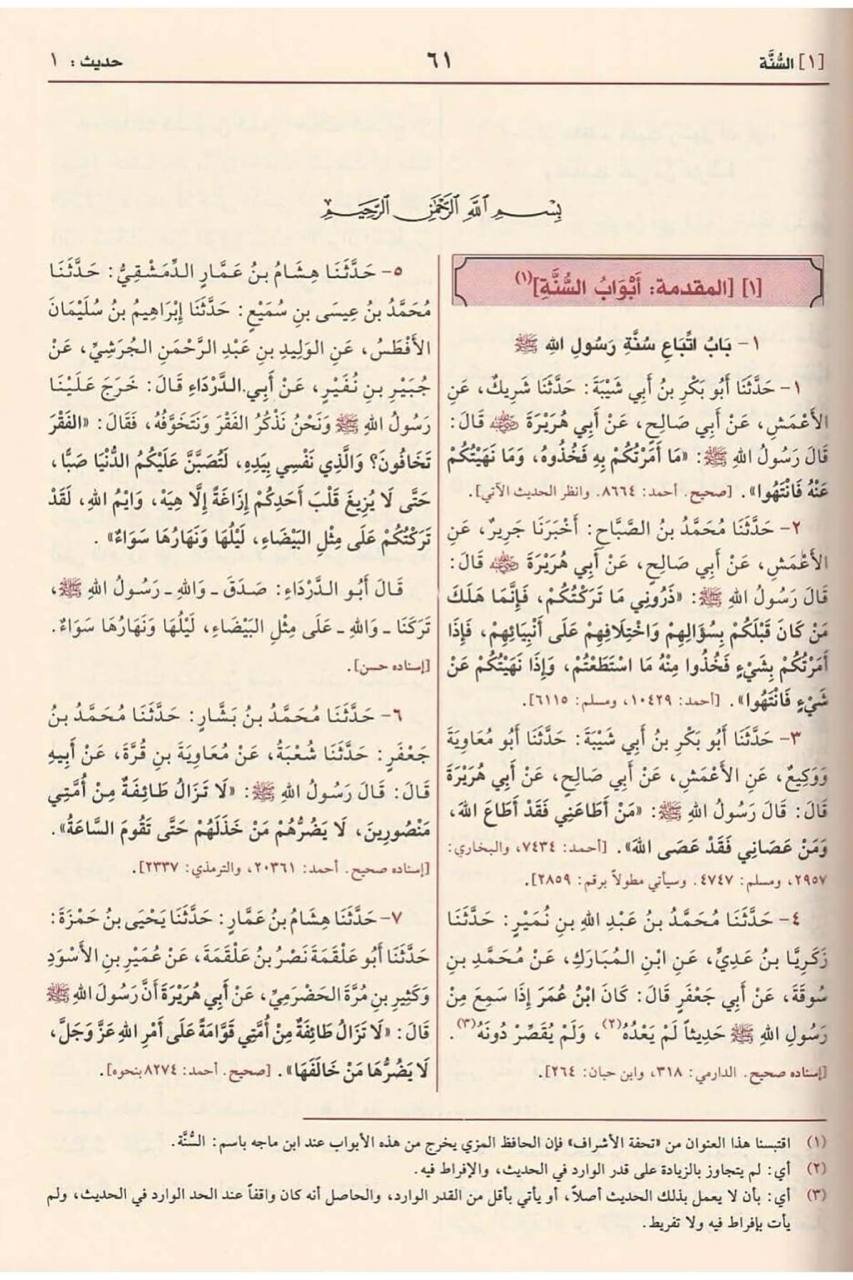 [١] السُّنَّة
٦١
حديث: ١
بِسْمِ اللهِ الرَّحْمٰنِ الرَّحِيمِ
[١] [المقدمة: أَبْوَابُ السُّنَّةِ](١)
١- بَابُ اتِّبَاعِ سُنَّةِ رَسُولِ اللهِ ﷺ
١- حَدَّثَنَا أَبُو بَكْرِ بنُ أَبِي شَيْبَةَ: حَدَّثَنَا شَرِيكٌ، عَنِ
الأَعْمَشِ، عَنْ أَبِي صَالِحٍ، عَنْ أَبِي هُرَيْرَةَ ﷺ قَالَ:
قَالَ رَسُولُ اللهِ ﷺ: «مَا أَمَرْتُكُمْ بِهِ فَخُذُوهُ، وَمَا نَهَيْتُكُمْ
عَنْهُ فَانْتَهُوا». [صحيح. أحمد: ٨٦٦٤. وانظر الحديث الآتي].
٢- حَدَّثَنَا مُحَمَّدُ بنُ الصَّبَّاحِ: أَخْبَرَنَا جَرِيرٌ، عَنِ
الأَعْمَشِ، عَنْ أَبِي صَالِحٍ، عَنْ أَبِي هُرَيْرَةَ رضي الله عنه قَالَ:
قَالَ رَسُولُ اللهِ ﷺ: «ذَرُونِي مَا تَرَكْتُكُمْ، فَإِنَّمَا هَلَكَ
مَنْ كَانَ قَبْلَكُمْ بِسُؤَالِهِمْ وَاخْتِلَافِهِمْ عَلَى أَنْبِيَائِهِمْ، فَإِذَا
أَمَرْتُكُمْ بِشَيْءٍ فَخُذُوا مِنْهُ مَا اسْتَطَعْتُمْ، وَإِذَا نَهَيْتُكُمْ عَنْ
شَيْءٍ فَانْتَهُوا». [أحمد: ١٠٤٢٩، ومسلم: ٦١١٥].
٣- حَدَّثَنَا أَبُو بَكْرِ بنُ أَبِي شَيْبَةَ: حَدَّثَنَا أَبُو مُعَاوِيَةَ
وَوَكِيعٌ، عَنِ الأَعْمَشِ، عَنْ أَبِي صَالِحٍ، عَنْ أَبِي هُرَيْرَةَ
قَالَ: قَالَ رَسُولُ اللهِ ﷺ: «مَنْ أَطَاعَنِي فَقَدْ أَطَاعَ اللهَ،
وَمَنْ عَصَانِي فَقَدْ عَصَى اللهَ». [أحمد: ٧٤٣٤، والبخاري:
٢٩٥٧، ومسلم: ٤٧٤٧. وسيأتي مطولاً برقم: ٢٨٥٩].
٤- حَدَّثَنَا مُحَمَّدُ بنُ عَبْدِ اللهِ بنِ نُمَيْرٍ: حَدَّثَنَا
زَكَرِيَّا بنُ عَدِيٍّ، عَنِ ابْنِ المُبَارَكِ، عَنْ مُحَمَّدِ بنِ
سُوقَةَ، عَنْ أَبِي جَعْفَرٍ قَالَ: كَانَ ابْنُ عُمَرَ إِذَا سَمِعَ مِنْ
رَسُولِ اللهِ ﷺ حَدِيثاً لَمْ يَعْدُهُ(٢)، وَلَمْ يُقَصِّرْ دُونَهُ(٣).
[إسناده صحيح. الدارمي: ٣١٨، وابن حبان: ٢٦٤].
٥- حَدَّثَنَا هِشَامُ بنُ عَمَّارٍ الدِّمَشْقِيُّ: حَدَّثَنَا
مُحَمَّدُ بنُ عِيسَى بنِ سُمَيْعٍ: حَدَّثَنَا إِبْرَاهِيمُ بنُ سُلَيْمَانَ
الأَفْطَسُ، عَنِ الوَلِيدِ بنِ عَبْدِ الرَّحْمَنِ الجُرَشِيِّ، عَنْ
جُبَيْرِ بنِ نُفَيْرٍ، عَنْ أَبِي الدَّرْدَاءِ قَالَ: خَرَجَ عَلَيْنَا
رَسُولُ اللهِ ﷺ وَنَحْنُ نَذْكُرُ الفَقْرَ وَنَتَخَوَّفُهُ، فَقَالَ: «الفَقْرَ
تَخَافُونَ؟ وَالَّذِي نَفْسِي بِيَدِهِ، لَتُصَبَّنَّ عَلَيْكُمُ الدُّنْيَا صَبًّا،
حَتَّى لَا يُزِيغَ قَلْبَ أَحَدِكُمْ إِزَاغَةً إِلَّا هِيَهْ، وَايْمُ اللهِ، لَقَدْ
تَرَكْتُكُمْ عَلَى مِثْلِ البَيْضَاءِ، لَيْلُهَا وَنَهَارُهَا سَوَاءٌ».
قَالَ أَبُو الدَّرْدَاءِ: صَدَقَ ـ وَاللهِ ـ رَسُولُ اللهِ ﷺ،
تَرَكَنَا ـ وَاللهِ ـ عَلَى مِثْلِ البَيْضَاءِ، لَيْلُهَا وَنَهَارُهَا سَوَاءٌ.
[إسناده حسن].
٦- حَدَّثَنَا مُحَمَّدُ بنُ بَشَّارٍ: حَدَّثَنَا مُحَمَّدُ بنُ
جَعْفَرٍ: حَدَّثَنَا شُعْبَةُ، عَنْ مُعَاوِيَةَ بنِ قُرَّةَ، عَنْ أَبِيهِ
قَالَ: قَالَ رَسُولُ اللهِ ﷺ: «لَا تَزَالُ طَائِفَةٌ مِنْ أُمَّتِي
مَنْصُورِينَ، لَا يَضُرُّهُمْ مَنْ خَذَلَهُمْ حَتَّى تَقُومَ السَّاعَةُ».
[إسناده صحيح. أحمد: ٢٠٣٦١، والترمذي: ٢٣٣٧].
٧- حَدَّثَنَا هِشَامُ بنُ عَمَّارٍ: حَدَّثَنَا يَحْيَى بنُ حَمْزَةَ:
حَدَّثَنَا أَبُو عَلْقَمَةَ نَصْرُ بنُ عَلْقَمَةَ، عَنْ عُمَيْرِ بنِ الأَسْوَدِ
وَكَثِيرِ بنِ مُرَّةَ الحَضْرَمِيِّ، عَنْ أَبِي هُرَيْرَةَ أَنَّ رَسُولَ اللهِ ﷺ
قَالَ: «لَا تَزَالُ طَائِفَةٌ مِنْ أُمَّتِي قَوَّامَةً عَلَى أَمْرِ اللهِ عَزَّ وَجَلَّ،
لَا يَضُرُّهَا مَنْ خَالَفَهَا». [صحيح. أحمد: ٨٢٧٤ بنحوه].
(١) اقتبسنا هذا العنوان من «تحفة الأشراف» فإن الحافظ المزي يخرج من هذه الأبواب عند ابن ماجه باسم: السُّنَّة.
(٢) أي: لم يتجاوز بالزيادة على قدر الوارد في الحديث، والإفراط فيه.
(٣) أي: بأن لا يعمل بذلك الحديث أصلاً، أو يأتي بأقل من القدر الوارد، والحاصل أنه كان واقفاً عند الحد الوارد في الحديث، ولم
يأت بإفراط فيه ولا تفريط.